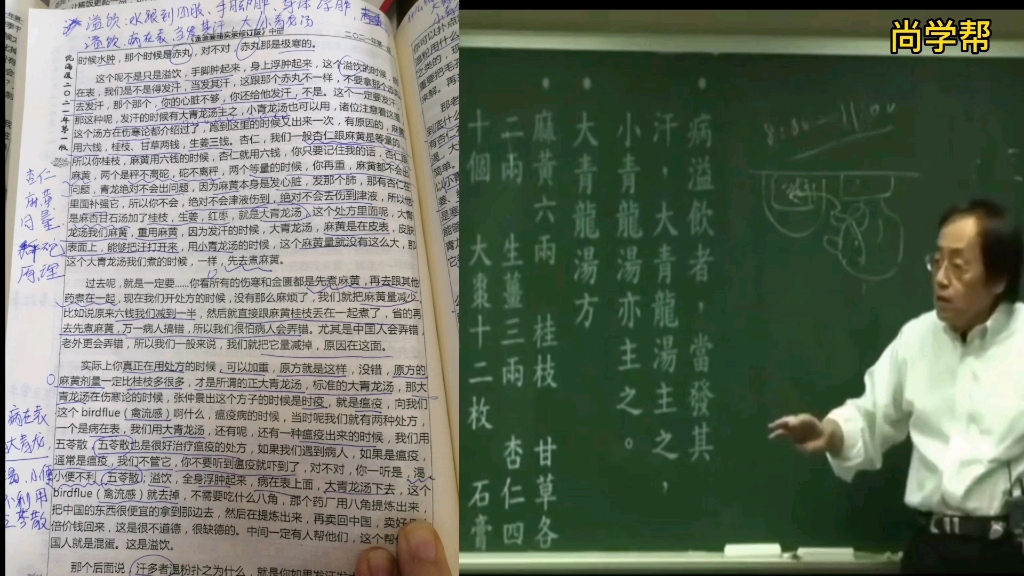 溢饮:水跑到四肢、手脚肿、身体浮肿
溢饮、病在表、当发其汗、大小青龙汤
时候水肿，那个时候是赤丸，对不对，赤丸那是极寒的。
这个呢不是只是溢饮，手脚肿起来，身上浮肿起来，这个溢饮的时候，
在表，我们是不是得发汗，当发其汗，这跟那个赤丸不一样，不要拿那个
去发汗，那个那个，你的心脏不够，你还给他发汗，不是。这个一定要发汗
那这种呢，发汗的时候有大青龙汤主之，小青龙汤也可以用，诸位注意看这
这个方在伤寒论都介绍过了，跑到这里的时候又出来一次，有原因的，麻黄
用六钱，桂枝、甘草两钱，生姜三钱。杏仁，我们一般杏仁跟麻黄是等量的
所以你桂枝，麻黄用六钱的时候，杏仁就用六钱，你只要记住我的话，杏仁跟
麻黄，两个是秤不离砣，砣不离秤，两个等量的时候，你再重，麻黄都不会出
问题，青龙绝对不会出问题，因为麻黄本身是发心脏，发那个肺，那有杏仁在
里面补强它，所以你不会，绝对不会津液伤到，绝对不会去伤到津液，所以他
是麻杏甘石汤加了桂枝，生姜，红枣，就是大青龙汤。这个处方里面呢，大青
龙汤我们麻黄，重用麻黄，因为发汗的时候，大青龙汤，麻黄是在皮表，皮肤
表面上，能够把汗打开来，用小青龙汤的时候，这个麻黄量就没有这么大，那
这个大青龙汤我们煮的时候，一样，先去煮麻黄。
过去呢，就是一定要……你看所有的伤寒和金匮都是先煮麻黄，再去跟其他
药煮在一起，现在我们开处方的时候，没有那么麻烦了，我们就把麻黄量减少，
比如说原来六钱我们减到一半，然后就直接跟麻黄桂枝丢在一起煮了，省的再
去先煮麻黄，万一病人搞错，所以我们很怕病人会弄错。尤其是中国人会弄错，
老外更会弄错，所以我们一般来说，我们就把它量减掉，原因在这面。
实际上你真正在用处方的时候，可以加重，原方就是这样，没错，原方的
麻黄剂量一定比桂枝多很多，才是所谓的正大青龙汤，标准的大青龙汤，那大
青龙汤在伤寒论的时候，张仲景出这个方子的时候是时疫，就是瘟疫，向我们
这个 birdflue（禽流感）啊什么，瘟疫病的时候，当时呢我们就有两种处方，
一个是病在表，我们用大青龙汤，还有呢，还有一种瘟疫出来的时候，我们用
五苓散，五苓散也是很好治疗瘟疫的处方，如果我们遇到病人，如果是瘟疫，
通常是瘟疫，我们不管它，你不要听到瘟疫就吓到了，对不对，你一听是，渴，
小便不利，五苓散，溢饮，全身浮肿起来，病在表上面，大青龙汤下去，这个
birdflue（禽流感）就去掉，不需要吃什么八角，那个药厂用八角提炼出来，
把中国的东西很便宜的拿到那边去，然后在提炼出来，再卖回中国，卖好
倍价钱回来，这是很不道德，很缺德的。中间一定有人帮他们，这个帮他
国人就是混蛋。这是溢饮。
那个后面说，汗多者温粉扑之为什么，就是你如果发汗发
杏仁
麻黄
同量
原理
病在表
大青龙
渴、小便
不利用
五苓散
尚学帮
8:00—11:00
病溢飲者，當發其
汗，大青龍湯主之，
小青龍湯亦主之。
大青龍湯方
麻黃六兩 桂枝 甘草各
二兩 生薑三兩 杏仁四
十個 大棗十二枚 石膏